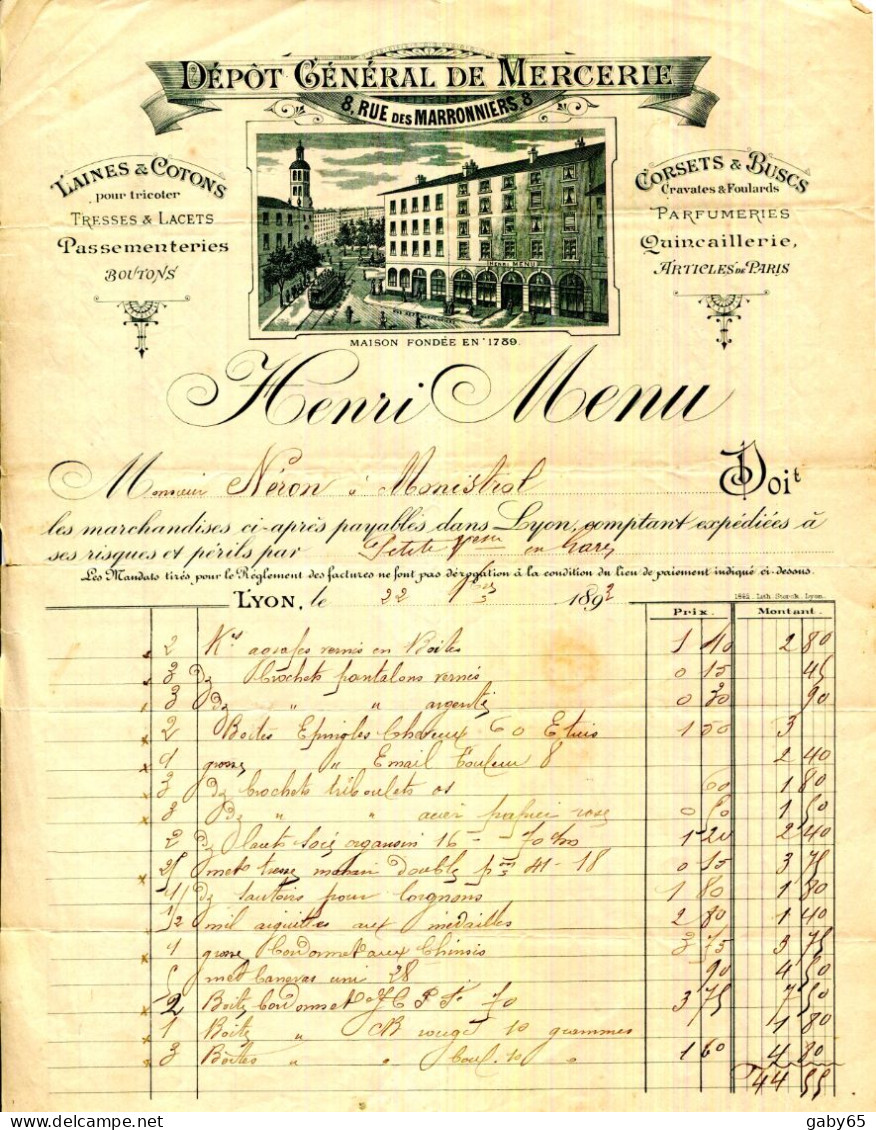 DÉPÔT GÉNÉRAL DE MERCERIE
8, RUE DES MARRONNIERS, 8
LAINES & COTONS
pour tricoter
TRESSES & LACETS
Passementeries
BOUTONS
HENRI MENU
CORSETS & BUSCS
Cravates & Foulards
PARFUMERIES
Quincaillerie,
ARTICLES DE PARIS
MAISON FONDÉE EN 1789.
Henri Menu
Monsieur Néron à Monistrol Doit
les marchandises ci-après payables dans Lyon, comptant expédiées à
ses risques et périls par Petite en gare
Les Mandats tirés pour le Réglement des factures ne font pas dérogation à la condition du lieu de paiement indiqué ci-dessus.
LYON, le 22 1892
1882. Lith. Storck. Lyon.
Prix. Montant.
2 agrafes vernis en Boites 1 40 2 80
3 dz Crochets pantalons vernis 0 15 45
3 dz " " argentés 0 30 90
2 Boites Epingles Cheveux 60 Etuis 1 50 3
1 grosse " Email Couleur 8 2 40
3 dz Crochets os 60 1 80
3 dz " " acier papier rose 0 50 1 50
2 dz Lacets 16 - 70 1 20 2 40
25 met tresse mohair double 41 - 18 0 15 3 75
1 dz Sautoirs pour Lorgnons 1 80 1 80
1/2 mil aiguilles aux médailles 2 80 1 40
1 grosse Cordonnet aux Chinois 3 75 3 75
5 met Canevas uni 28 90 4 50
2 Boites Cordonnet 70 3 75 7 50
1 Boite " CB rouge 10 grammes 1 80
3 Boites " " Coul. 10 " 1 60 4 80
44 55
gaby65